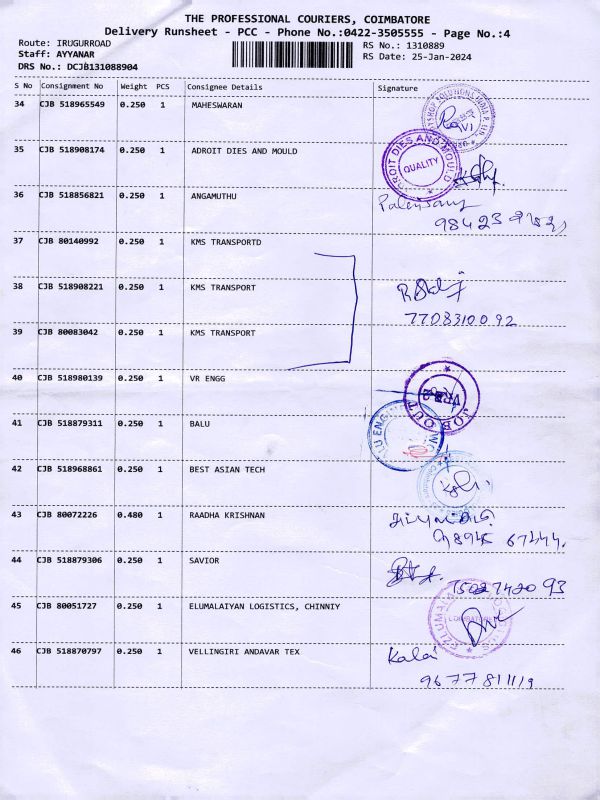 THE PROFESSIONAL COURIERS, COIMBATORE
Delivery Runsheet - PCC - Phone No.:0422-3505555 - Page No.:4
Route: IRUGURROAD
RS No.: 1310889
Staff: AYYANAR
RS Date: 25-Jan-2024
DRS No.: DCJB131088904
S No Consignment No Weight PCS Consignee Details Signature
34 CJB 518965549 0.250 1 MAHESWARAN
Ravi
35 CJB 518908174 0.250 1 ADROIT DIES AND MOULD
ADROIT DIES AND MOULD
QUALITY
36 CJB 518856821 0.250 1 ANGAMUTHU
98423
37 CJB 80140992 0.250 1 KMS TRANSPORTD
38 CJB 518908221 0.250 1 KMS TRANSPORT
7708310092
39 CJB 80083042 0.250 1 KMS TRANSPORT
40 CJB 518980139 0.250 1 VR ENGG
JOB OUT
41 CJB 518879311 0.250 1 BALU
42 CJB 518968861 0.250 1 BEST ASIAN TECH
43 CJB 80072226 0.480 1 RAADHA KRISHNAN
67444
44 CJB 518879306 0.250 1 SAVIOR
45 CJB 80051727 0.250 1 ELUMALAIYAN LOGISTICS, CHINNIY
46 CJB 518870797 0.250 1 VELLINGIRI ANDAVAR TEX
Kalai
9677811119